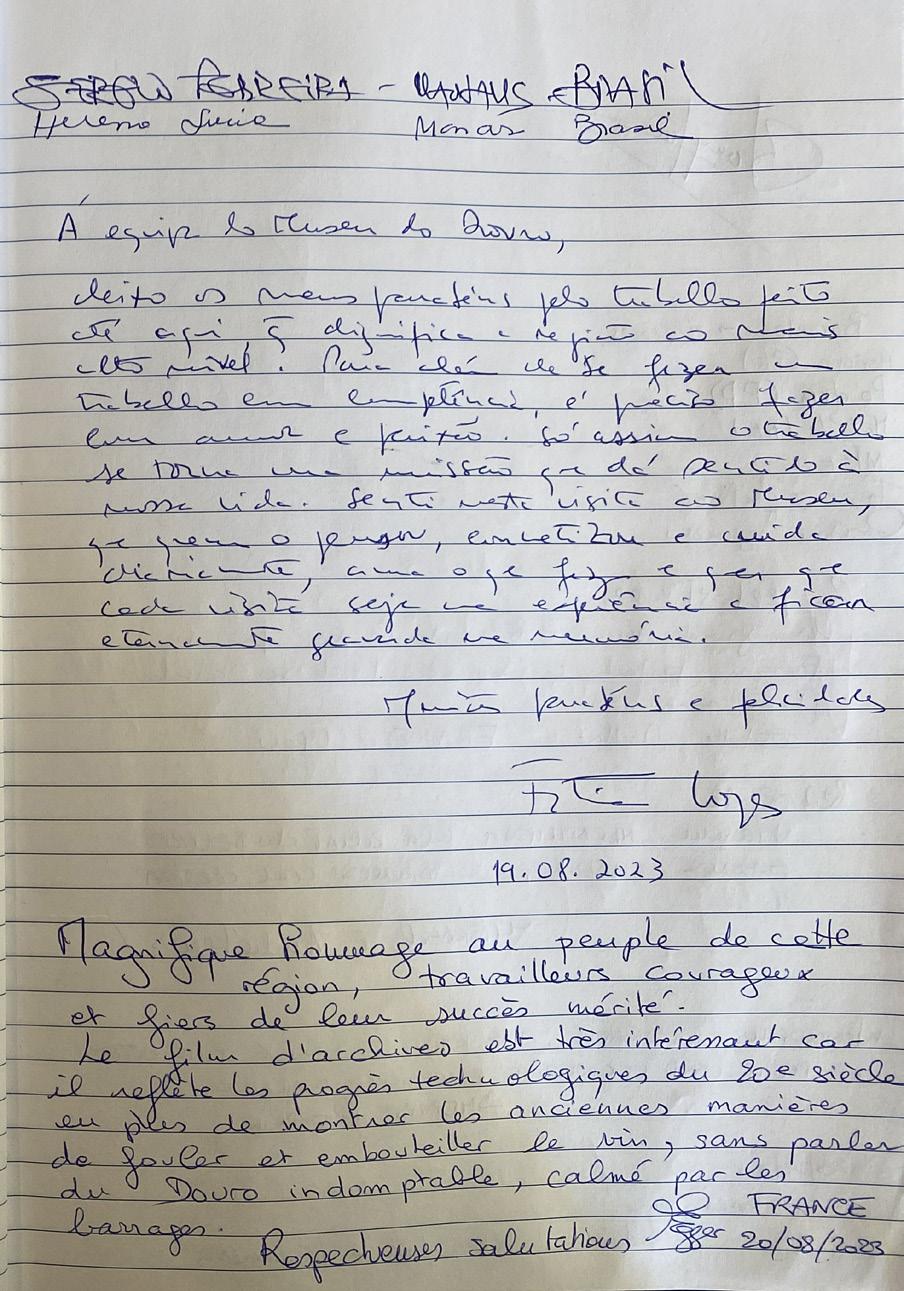 FERREIRA - MANAUS - BRASIL
Lucia Manaus Brasil
À equipa do Museu do Douro,
deixo os meus parabéns pelo trabalho feito
até aqui, q dignifica a região ao mais
alto nível. Para além de se fazer um
trabalho com competência, é preciso fazer
com amor e paixão. Só assim o trabalho
se torna uma missão que dá sentido à
nossa vida. Senti nesta visita ao Museu,
que quem o pensou, concretizou e cuida
diariamente, ama o que faz e quer que
cada visita seja uma experiência a ficar
eternamente guardada na memória.
Muitos parabéns e felicidades
Lopes
19.08.2023
Magnifique hommage au peuple de cette
région, travailleurs courageux
et fiers de leur succès mérité.
Le film d'archives est très intéressant car
il reflète les progrès technologiques du 20e siècle
en plus de montrer les anciennes manières
de fouler et embouteiller le vin, sans parler
du Douro indomptable, calmé par les
barrages. FRANCE
Respectueuses salutations 20/08/2023